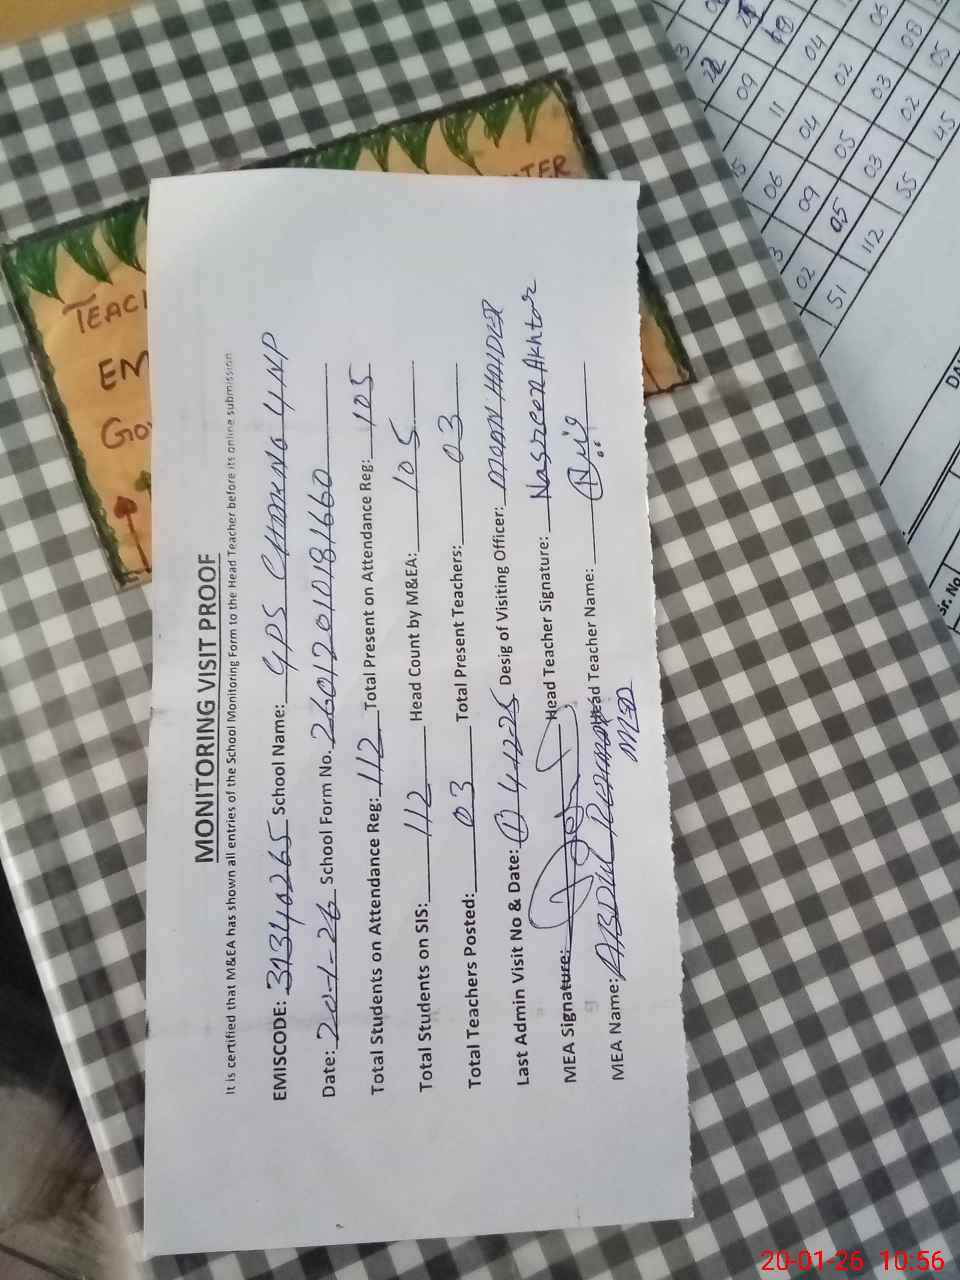 MONITORING VISIT PROOF
It is certified that M&EA has shown all entries of the School Monitoring Form to the Head Teacher before its online submission
EMISCODE: 31340265 School Name: GPS CHAK NO 4NP
Date: 20-1-26 School Form No. 26012010181660
Total Students on Attendance Reg: 112 Total Present on Attendance Reg: 105
Total Students on SIS: 112 Head Count by M&EA: 105
Total Teachers Posted: 03 Total Present Teachers: 03
Last Admin Visit No & Date: ① 4-12-25 Desig of Visiting Officer: HAIDER
MEA Signature: Head Teacher Signature: Nasreen Akhtar
MEA Name: ABDUL REHMAN Head Teacher Name:
TEACH
EM
GO
TER
09 11 04 02 03 08
06 04 05 03 02 05
02 09 05 03 55 45
51 112
Sr. No
20-01-26 10:56